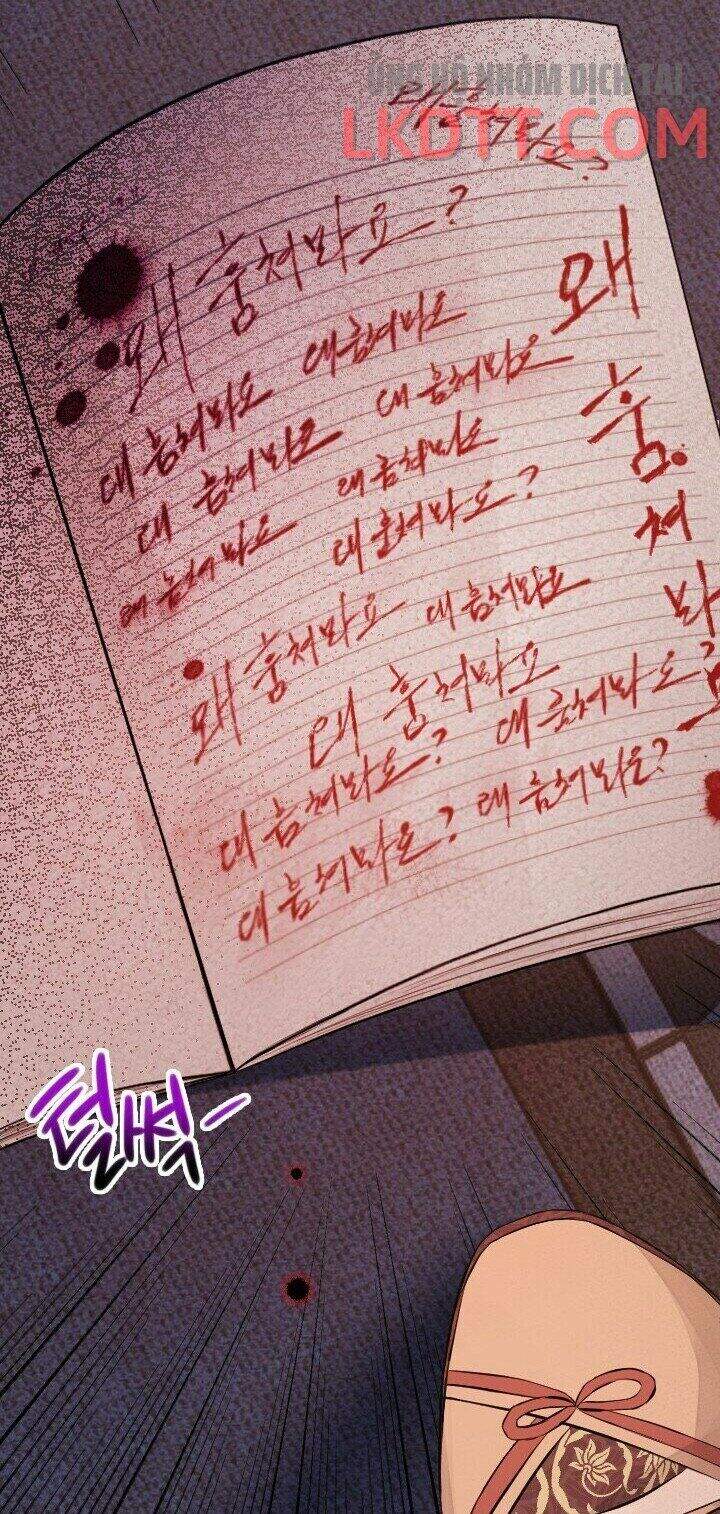 ỦNG HỘ NHÓM DỊCH TẠI
LKDTT.COM
왜 훔쳐봐요?
왜 훔쳐봐요
왜 훔쳐봐요 왜 훔쳐봐요
왜 훔쳐봐요 왜 훔쳐봐요
왜 훔쳐봐요 왜 훔쳐봐요?
왜 훔쳐봐요 왜 훔쳐봐요
왜 훔쳐봐요 왜 훔쳐봐요?
왜 훔쳐봐요?
왜 훔쳐봐요? 왜 훔쳐봐요?
왜 훔쳐봐요
털썩